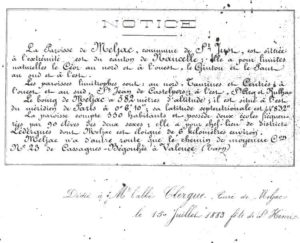 NOTICE
La Paroisse de Meljac, commune de St Just, est située
à l'extrémité est du canton de Naucelle; elle a pour limites
naturelles le Céor au nord et à l'ouest, le Giffou et le Saut
au sud et à l'est.
Les paroisses limitrophes sont: au nord, Taurines et Centrès; à
l'ouest et au sud, St Jean de Castelpers; à l'est, St et Rullac
Le bourg de Meljac a 582 mètres d'altitude; il est situé à l'est
du méridien de Paris à 0°6'10"; sa latitude septentrionale est
La paroisse compte 550 habitants et possède deux écoles fréquen-
tées par 90 élèves des deux sexes; elle a pour chef-lieu de district
Lédergues dont Meljac est éloigné de 6 kilomètres environ.
Meljac n'a d'autre route que le chemin de moyenne Con
No 23 de Cassagnes-Bégonhès à Valence (Tarn)
Dédié à Mr l'abbé Clergue, Curé de Meljac
le 15 Juillet 1883 fête de St Henri